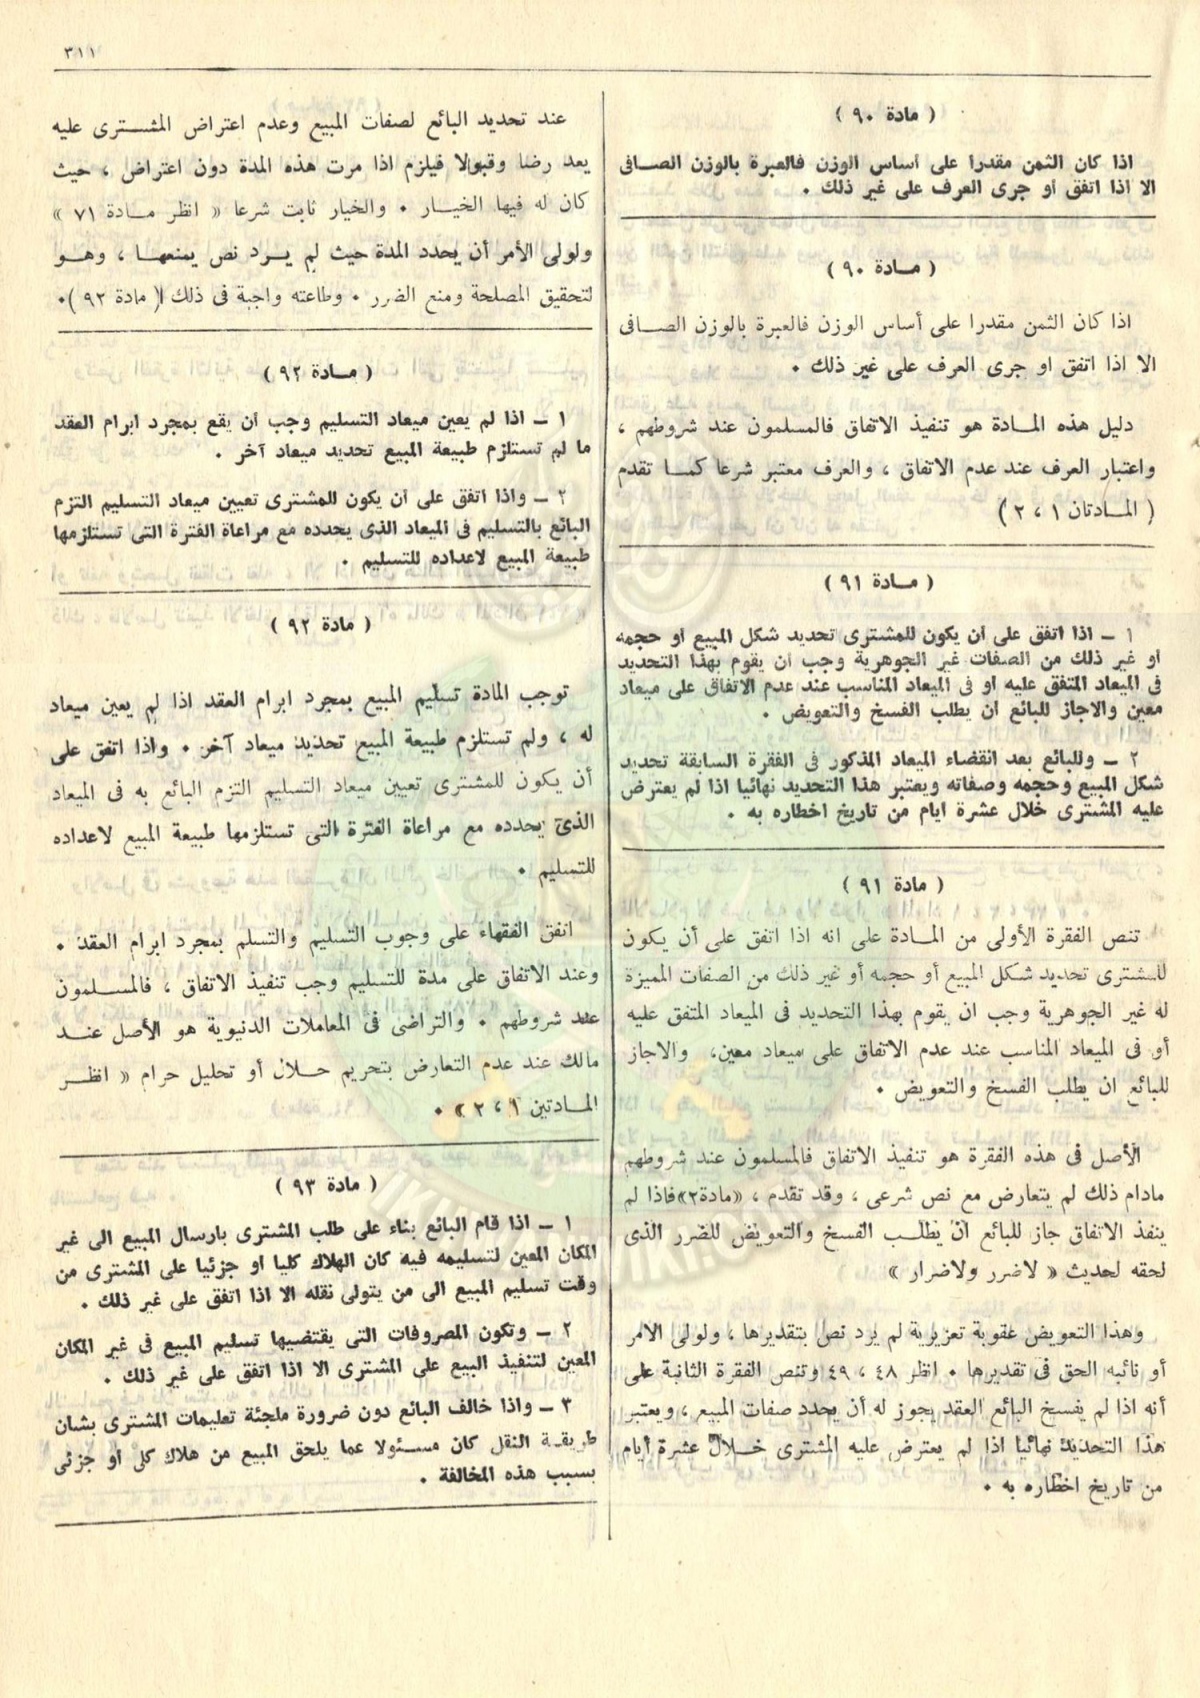 ٣١١
( مادة ٩٠ )
اذا كان الثمن مقدرا على أساس الوزن فالعبرة بالوزن الصافى
الا اذا اتفق او جرى العرف على غير ذلك .
( مادة ٩٠ )
اذا كان الثمن مقدرا على أساس الوزن فالعبرة بالوزن الصافى
الا اذا اتفق او جرى العرف على غير ذلك .
دليل هذه المادة هو تنفيذ الاتفاق فالمسلمون عند شروطهم ،
واعتبار العرف عند عدم الاتفاق ، والعرف معتبر شرعا كما تقدم
( المادتان ١ ، ٢ )
( مادة ٩١ )
١ ــ اذا اتفق على ان يكون للمشترى تحديد شكل المبيع أو حجمه
او غير ذلك من الصفات غير الجوهرية وجب ان يقوم بهذا التحديد
فى الميعاد المتفق عليه او فى الميعاد المناسب عند عدم الاتفاق على ميعاد
معين والاجاز للبائع ان يطلب الفسخ والتعويض .
٢ ــ وللبائع بعد انقضاء الميعاد المذكور فى الفقرة السابقة تحديد
شكل المبيع وحجمه وصفاته ويعتبر هذا التحديد نهائيا اذا لم يعترض
عليه المشترى خلال عشرة ايام من تاريخ اخطاره به .
( مادة ٩١ )
تنص الفقرة الأولى من المادة على انه اذا اتفق على أن يكون
للمشترى تحديد شكل المبيع أو حجمه أو غير ذلك من الصفات المميزة
له غير الجوهرية وجب ان يقوم بهذا التحديد فى الميعاد المتفق عليه
أو فى الميعاد المناسب عند عدم الاتفاق على ميعاد معين، والاجاز
للبائع ان يطلب الفسخ والتعويض .
الأصل فى هذه الفقرة هو تنفيذ الاتفاق فالمسلمون عند شروطهم
مادام ذلك لم يتعارض مع نص شرعى ، وقد تقدم ، «مادة٢» فاذا لم
ينفذ الاتفاق جاز للبائع أن يطلب الفسخ والتعويض للضرر الذى
لحقه لحديث « لاضرر ولاضرار »
وهذا التعويض عقوبة تعزيرية لم يرد نص بتقديرها ، ولولى الامر
أو نائبه الحق فى تقديرها . انظر ٤٨ ، ٤٩ وتنص الفقرة الثانية على
أنه اذا لم يفسخ البائع العقد يجوز له أن يحدد صفات المبيع ، ويعتبر
هذا التحديد نهائيا اذا لم يعترض عليه المشترى خلال عشرة أيام
من تاريخ اخطاره به .
عند تحديد البائع لصفات المبيع وعدم اعتراض المشترى عليه
يعد رضا وقبولا فيلزم اذا مرت هذه المدة دون اعتراض ، حيث
كان له فيها الخيار . والخيار ثابت شرعا « انظر مادة ٧١ »
ولولى الأمر أن يحدد المدة حيث لم يرد نص يمنعها ، وهو
لتحقيق المصلحة ومنع الضرر . وطاعته واجبة فى ذلك ( مادة ٩٢ ).
( مادة ٩٢ )
١ ــ اذا لم يعين ميعاد التسليم وجب أن يقع بمجرد ابرام العقد
ما لم تستلزم طبيعة المبيع تحديد ميعاد آخر .
٢ ــ واذا اتفق على ان يكون للمشترى تعيين ميعاد التسليم التزم
البائع بالتسليم فى الميعاد الذى يحدده مع مراعاة الفترة التى تستلزمها
طبيعة المبيع لاعداده للتسليم .
( مادة ٩٢ )
توجب المادة تسليم المبيع بمجرد ابرام العقد اذا لم يعين ميعاد
له ، ولم تستلزم طبيعة المبيع تحديد ميعاد آخر . واذا اتفق على
أن يكون للمشترى تعيين ميعاد التسليم التزم البائع به فى الميعاد
الذى يحدده مع مراعاة الفترة التى تستلزمها طبيعة المبيع لاعداده
للتسليم .
اتفق الفقهاء على وجوب التسليم والتسلم بمجرد ابرام العقد .
وعند الاتفاق على مدة للتسليم وجب تنفيذ الاتفاق ، فالمسلمون
عند شروطهم . والتراضى فى المعاملات الدنيوية هو الأصل عند
مالك عند عدم التعارض بتحريم حلال أو تحليل حرام « انظر
المادتين ١ ، ٢ » .
( مادة ٩٣ )
١ ــ اذا قام البائع بناء على طلب المشترى بارسال المبيع الى غير
المكان المعين لتسليمه فيه كان الهلاك كليا او جزئيا على المشترى من
وقت تسليم المبيع الى من يتولى نقله الا اذا اتفق على غير ذلك .
٢ ــ وتكون المصروفات التى يقتضيها تسليم المبيع فى غير المكان
المعين لتنفيذ البيع على المشترى الا اذا اتفق على غير ذلك .
٣ ــ واذا خالف البائع دون ضرورة ملجئة تعليمات المشترى بشأن
طريقة النقل كان مسئولا عما يلحق المبيع من هلاك كلى أو جزئى
بسبب هذه المخالفة .